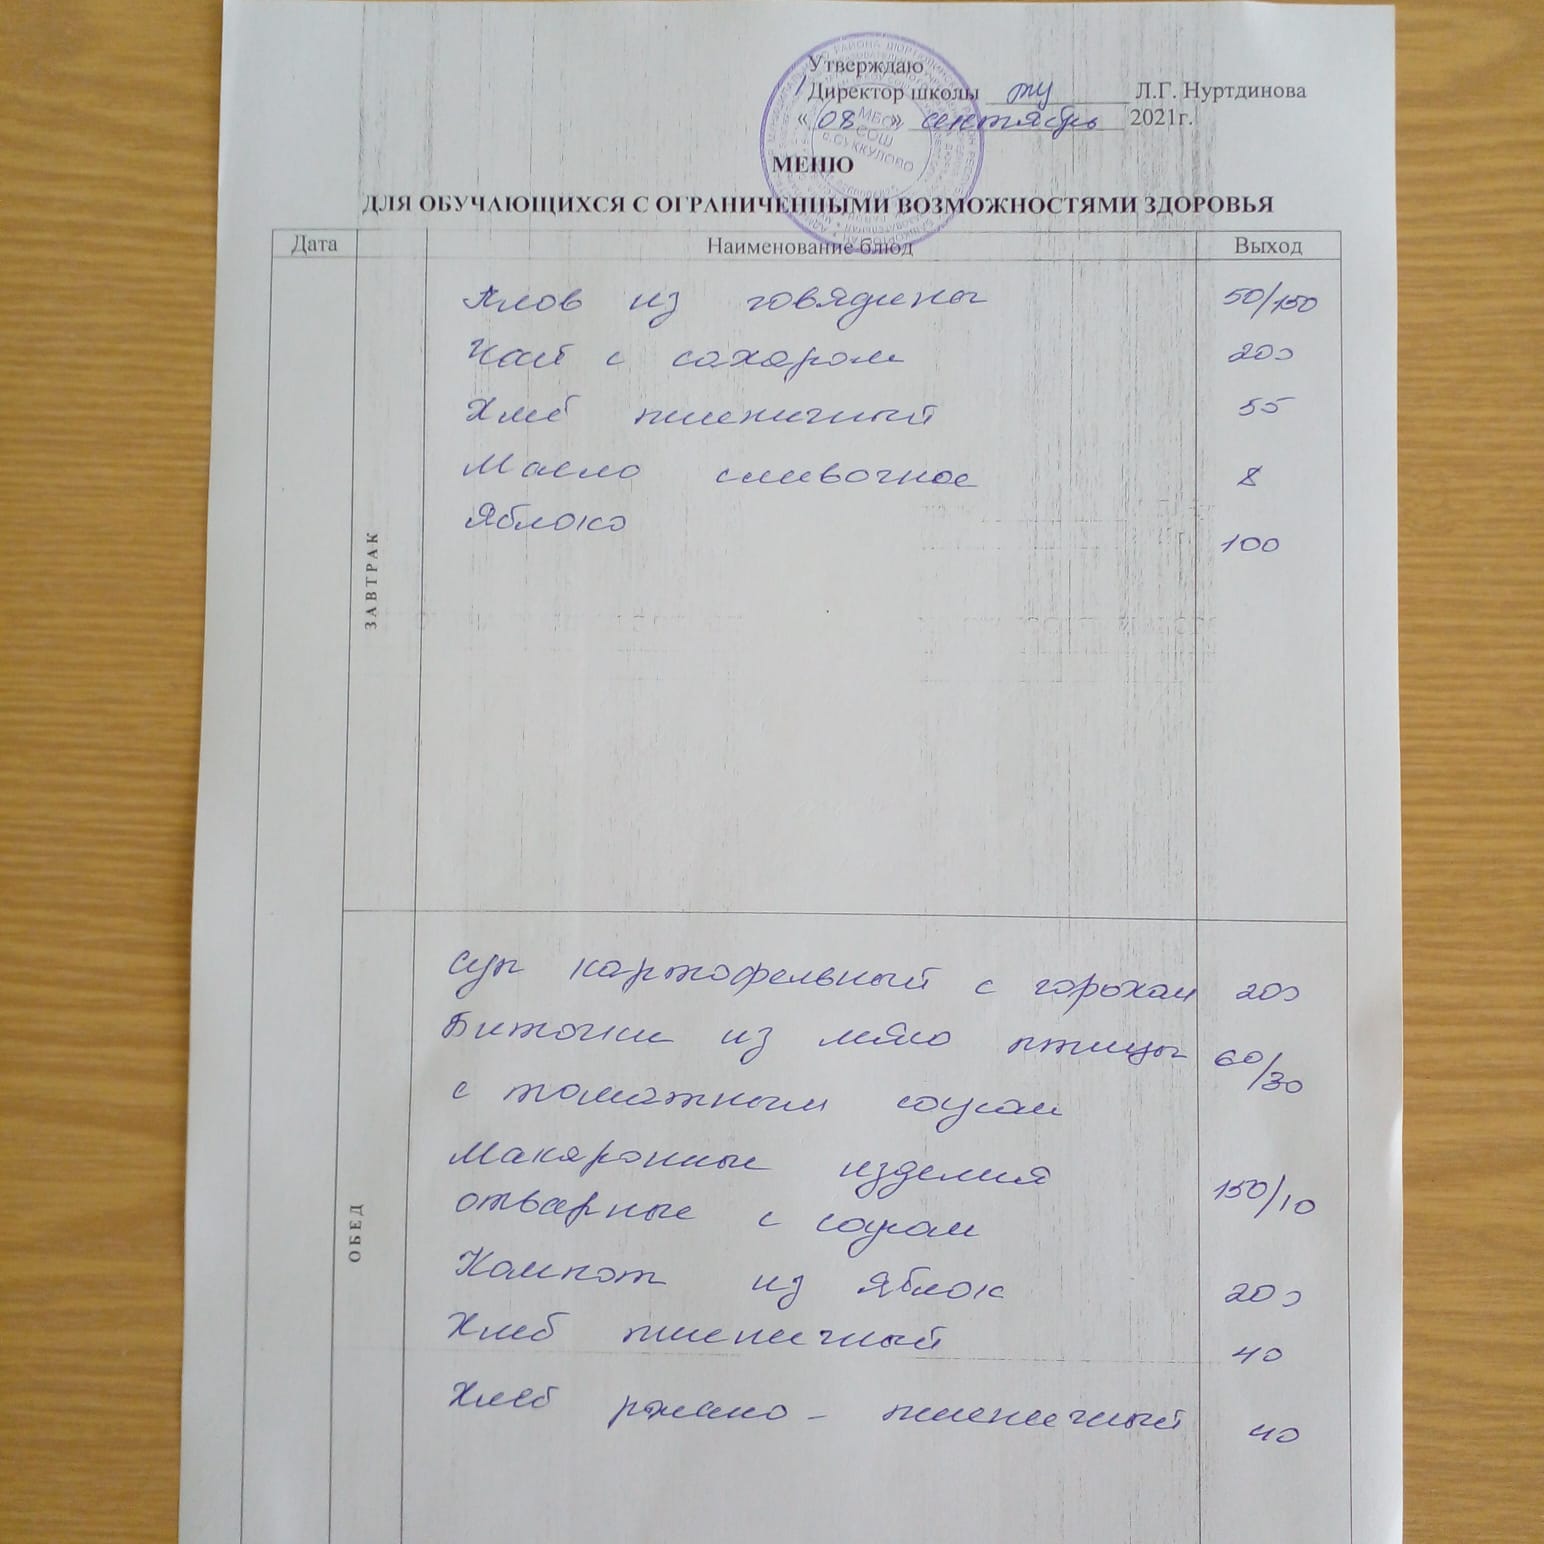 Утверждаю
Директор школы Л.Г. Нуртдинова
« 08 » сентябрь 2021г.
МБОУ
СОШ
с.СУККУЛОВО
МЕНЮ
ДЛЯ ОБУЧАЮЩИХСЯ С ОГРАНИЧЕННЫМИ ВОЗМОЖНОСТЯМИ ЗДОРОВЬЯ
Дата Наименование блюд Выход
ЗАВТРАК
Плов из говядины 50/150
Чай с сахаром 200
Хлеб пшеничный 55
Масло сливочное 8
Яблоко 100
ОБЕД
Суп картофельный с горохом 200
Биточки из мяса птицы 60/30
с томатным соусом
Макаронные изделия
отварные с соусом 150/10
Компот из яблок 200
Хлеб пшеничный 40
Хлеб ржано - пшеничный 40